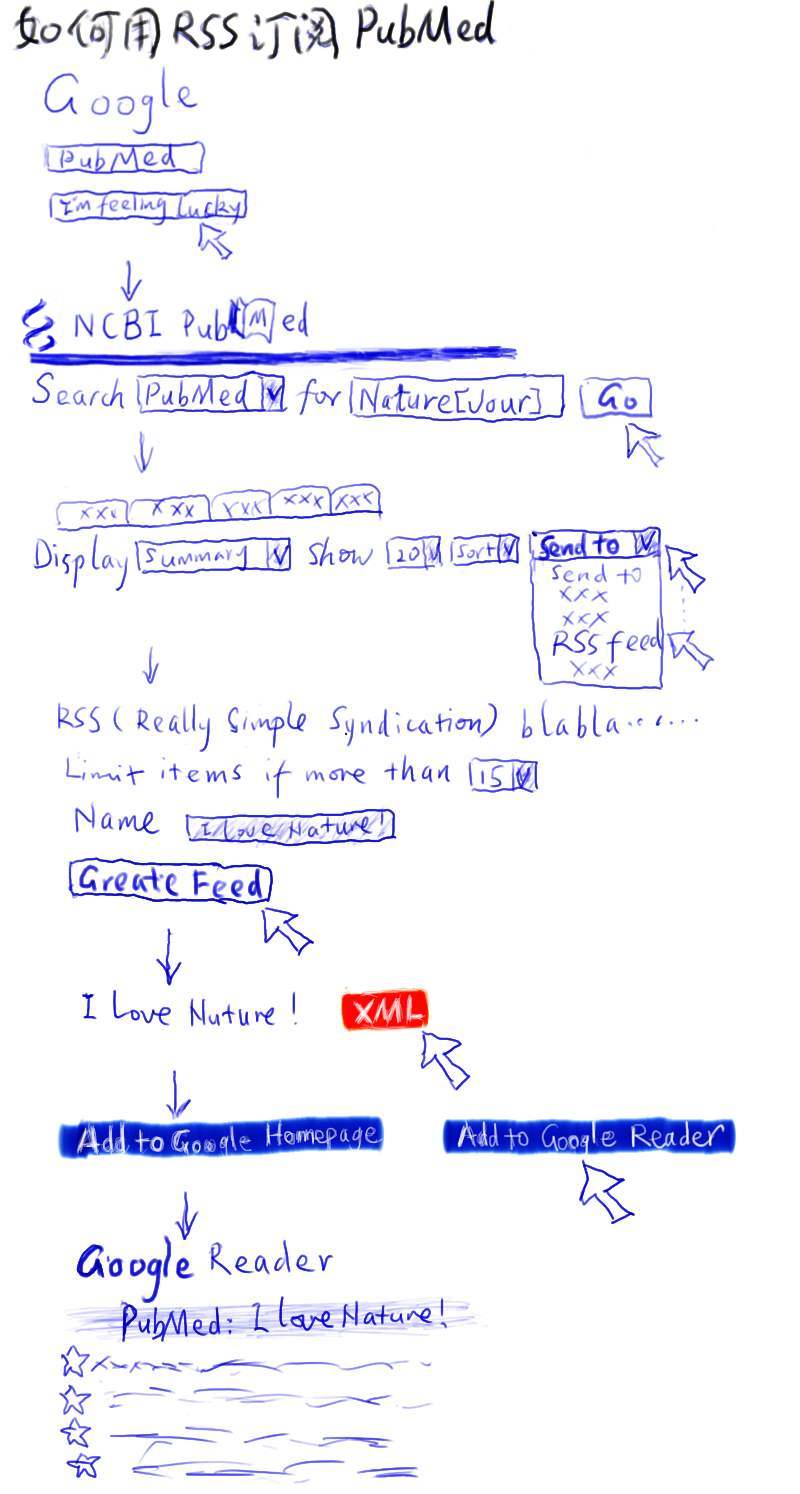 如何用RSS订阅PubMed
Google
PubMed
I'm feeling Lucky
NCBI PubMed
Search PubMed for Nature[Jour] Go
xxx xxx xxx xxx xxx
Display Summary Show 20 Sort Send to
Send to
xxx
xxx
RSS feed
xxx
RSS (Really Simple Syndication) blabla......
Limit items if more than 15
Name I love Nature!
Create Feed
I Love Nature! XML
Add to Google Homepage Add to Google Reader
Google Reader
PubMed: I love Nature!